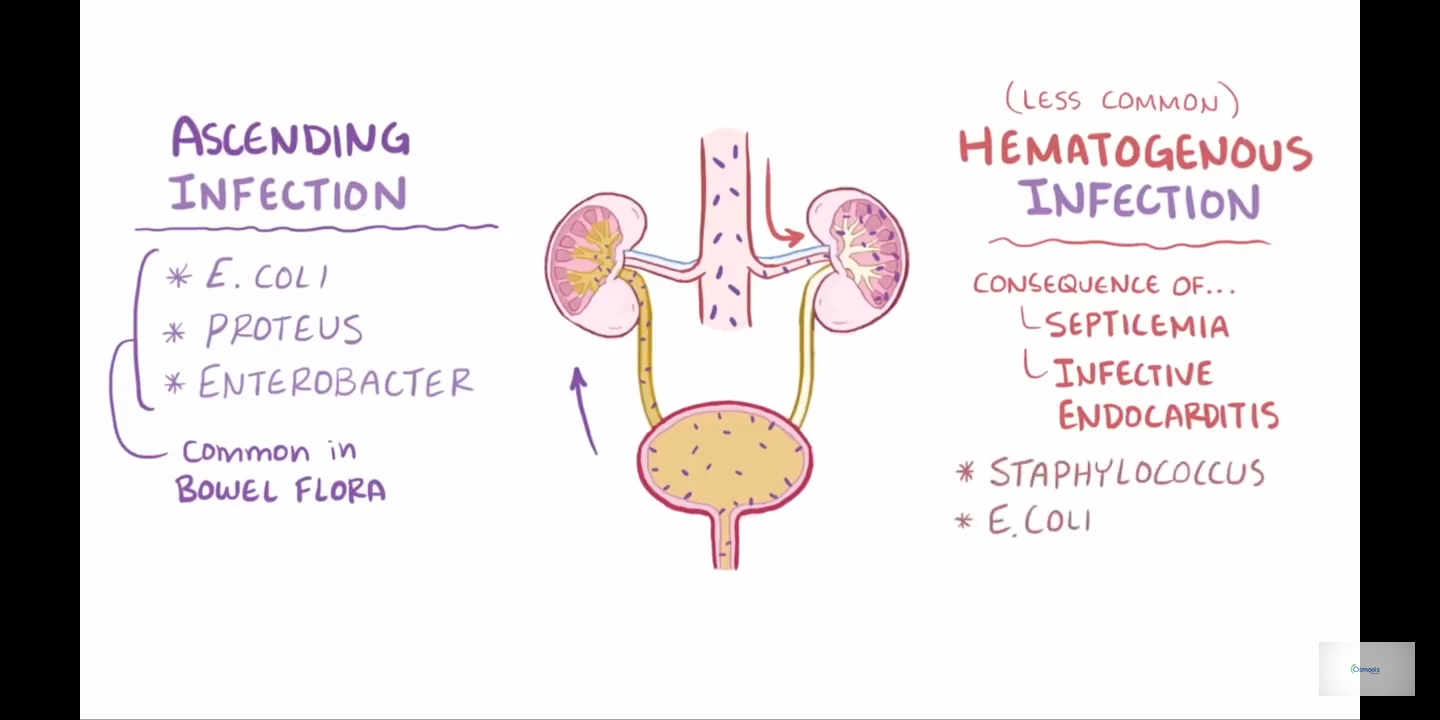 ASCENDING
INFECTION
* E. COLI
* PROTEUS
* ENTEROBACTER
Common in
BOWEL FLORA
(LESS COMMON)
HEMATOGENOUS
INFECTION
CONSEQUENCE OF...
SEPTICEMIA
INFECTIVE
ENDOCARDITIS
* STAPHYLOCOCCUS
* E. COLI
Osmosis